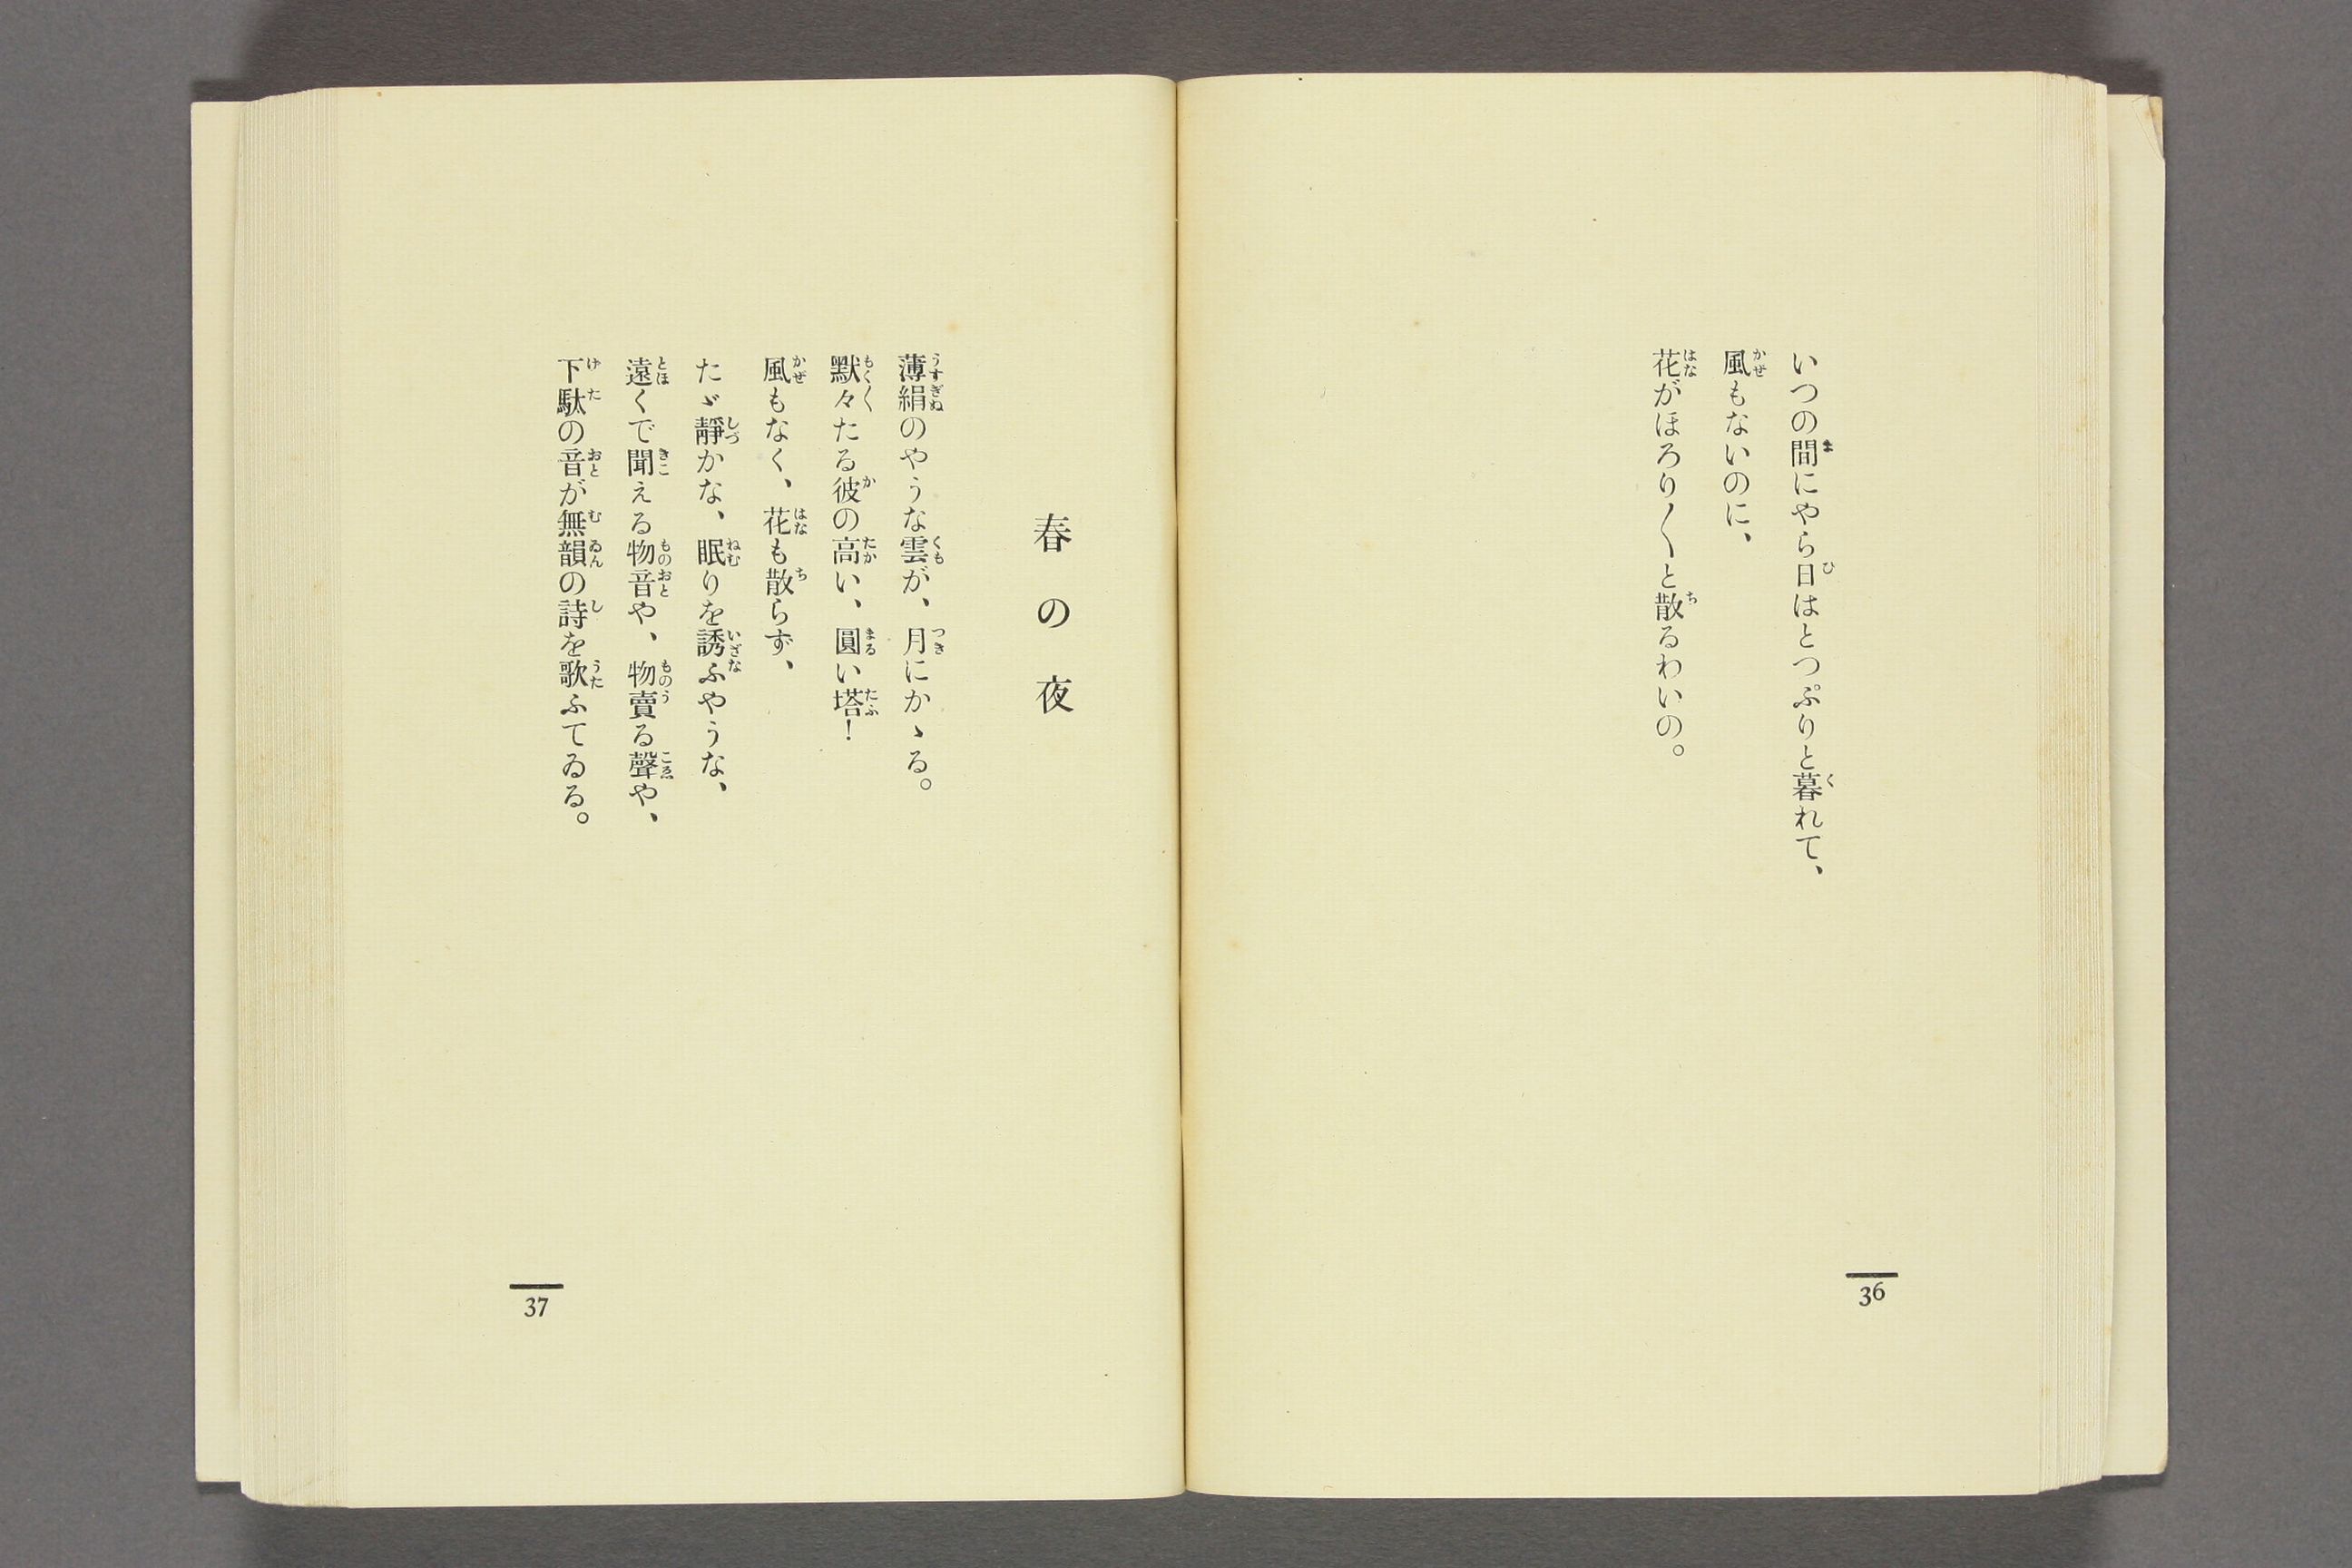 いつの間にやら日はとつぷりと暮れて、
風もないのに、
花がほろり〳〵と散るわいの。
36
春の夜
薄絹のやうな雲が、月にかゝる。
默々たる彼の高い、圓い塔！
風もなく、花も散らず、
たゞ靜かな、眠りを誘ふやうな、
遠くで聞える物音や、物賣る聲や、
下駄の音が無韻の詩を歌ふてゐる。
37